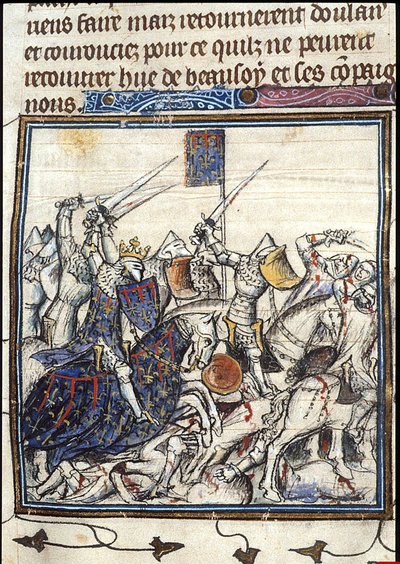 riens faire maiz retournerent doulan
et courouciez pour ce quilz ne peurent
recouurer hue de beausoy et ses cõpaig
nons.